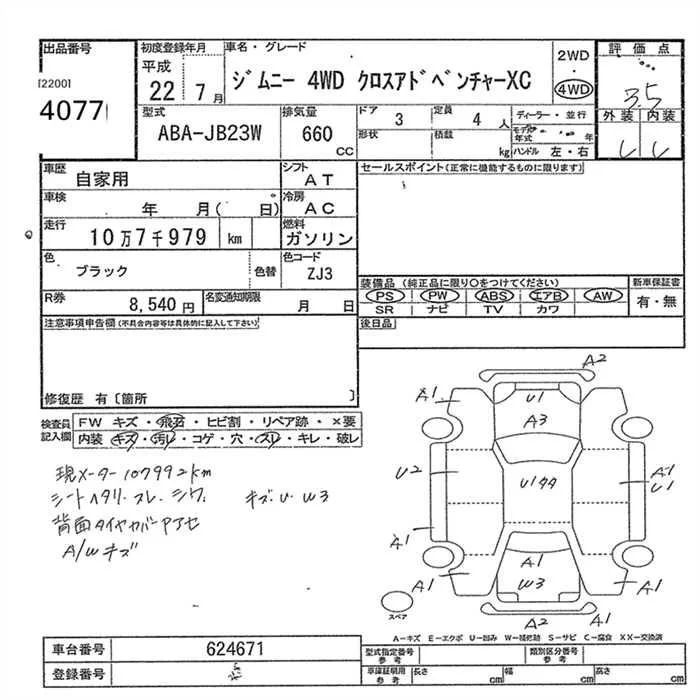 出品番号 初度登録年月 車名・グレード 2WD 評価点
[2200] 平成 4WD
4077 22 7月 ジムニー 4WD クロスアドベンチャーXC 3.5
型式 排気量 ドア 定員 ディーラー・並行 外装 内装
ABA-JB23W 660 CC 3 4人 モデル年式 年
形状 積載 kg ハンドル 左・右
車歴 自家用 シフト AT セールスポイント(正常に機能するものに限ります)
車検 年 月( 日) 冷房 AC
走行 10万7千979 km 燃料 ガソリン
色 ブラック 色替 色コード ZJ3
装備品 (純正品に限り○をつけてください) 新車保証書
R券 8,540円 名変通知期限 月 日 PS PW ABS エアB AW 有・無
SR ナビ TV カワ
注意事項申告欄(不具合内容等は具体的に記入して下さい) 後日品
修復歴 有〔箇所 〕
検査員記入欄 FW キズ・飛石・ヒビ割・リペア跡・×要
内装 キズ・汚レ・コゲ・穴・スレ・キレ・破レ
現メーター107992km
シートヘタリ.スレ.シワ. キズ.U.W3
背面タイヤカバーアアセ
A/Wキズ
A2
A1 U1 A1
A3
U2 U144 A1
U1
A1
A1 A1 A1
W3
スペア A2 A1
A−キズ E−エクボ U−凹み W−補修跡 S−サビ C−腐食 XX−交換済
車台番号 624671 型式指定番号 参考 類別区分番号 参考
登録番号 車庫証明用 参考 長さ cm 幅 cm 高さ cm